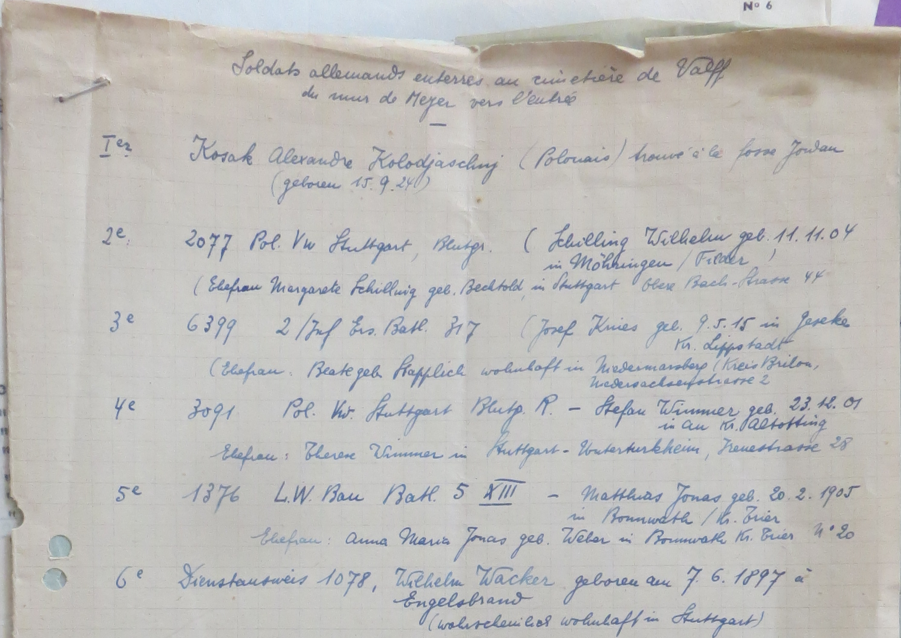 N° 6
Soldats allemands enterrés au cimetière de Valff
du mur de Meyer vers l'entrée
Ier Kosak Alexandre Kolodjaschnj (Polonais) trouvé à la fosse Jordan
(geboren 15.9.24)
2e. 2077 Pol. Vw Stuttgart, Blutgr. ( Schilling Wilhelm geb. 11.11.04
in Möhringen / Filder )
(Ehefrau Margarete Schilling geb. Bechtold, in Stuttgart Obere Bach-Strasse 44
3e 6399 2/Inf Ers. Batl. 317 (Josef Kries geb. 9.5.15 in Geseke
Kr. Lippstadt
(Ehefrau. Beate geb Stapplich wohnhaft in Niedermarsberg (Kreis Brilon,
Niedersachsenstrasse 2
4e 3091 Pol. Vw. Stuttgart Blutg. R. – Stefan Wimmer geb. 23.12.01
in au Kr. Altötting
Ehefrau: Therese Wimmer in Stuttgart-Unterturkheim, 28
5e 1376 L.W. Bau Batl. 5 XIII – Matthias Jonas geb. 20.2.1905
in / Kr. Trier
Ehefrau: Anna Maria Jonas geb. Weber in Kr. Trier N° 20
6e Dienstausweis 1078, Wilhelm Wacker geboren am 7.6.1897 à
Engelsbrand
(wahrscheinlich wohnhaft in Stuttgart)